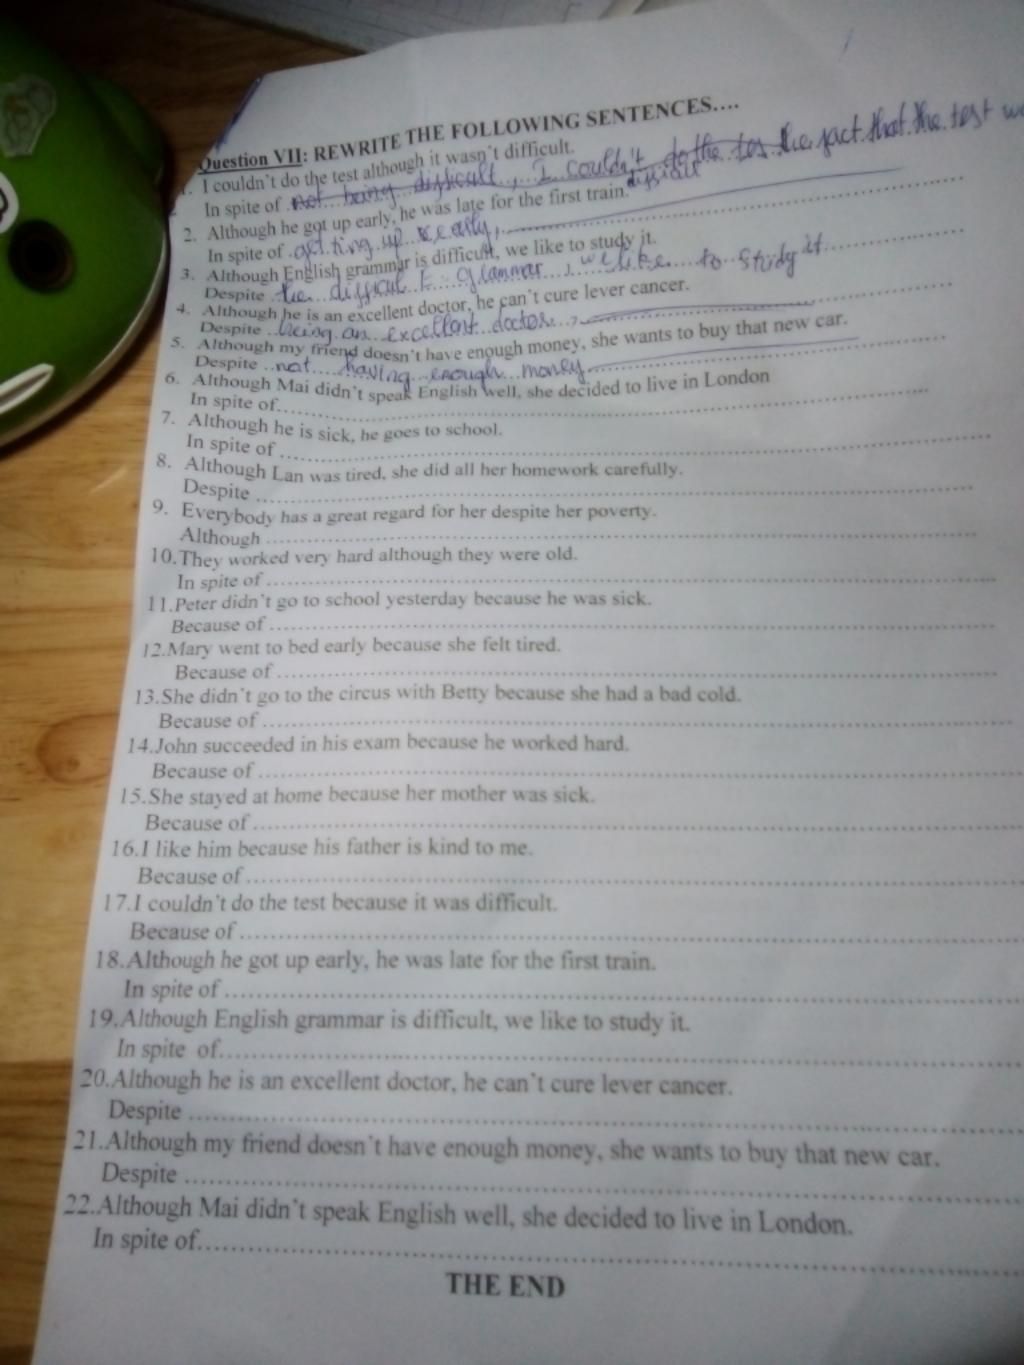 Question VII: REWRITE THE FOLLOWING SENTENCES....
1. I couldn't do the test although it wasn't difficult.
In spite of not being difficult, I couldn't do the tes the fact that the test
difficult
2. Although he got up early, he was late for the first train.
In spite of getting up early,
3. Although English grammar is difficult, we like to study it.
Despite the difficult E grammar, we like to study it
4. Although he is an excellent doctor, he can't cure lever cancer.
Despite being an excellent doctor,
5. Although my friend doesn't have enough money, she wants to buy that new car.
Despite not having enough money
6. Although Mai didn't speak English well, she decided to live in London
In spite of
7. Although he is sick, he goes to school.
In spite of
8. Although Lan was tired, she did all her homework carefully.
Despite
9. Everybody has a great regard for her despite her poverty.
Although
10.They worked very hard although they were old.
In spite of
11.Peter didn't go to school yesterday because he was sick.
Because of
12.Mary went to bed early because she felt tired.
Because of
13.She didn't go to the circus with Betty because she had a bad cold.
Because of
14.John succeeded in his exam because he worked hard.
Because of
15.She stayed at home because her mother was sick.
Because of
16.I like him because his father is kind to me.
Because of
17.I couldn't do the test because it was difficult.
Because of
18.Although he got up early, he was late for the first train.
In spite of
19.Although English grammar is difficult, we like to study it.
In spite of
20.Although he is an excellent doctor, he can't cure lever cancer.
Despite
21.Although my friend doesn't have enough money, she wants to buy that new car.
Despite
22.Although Mai didn't speak English well, she decided to live in London.
In spite of
THE END